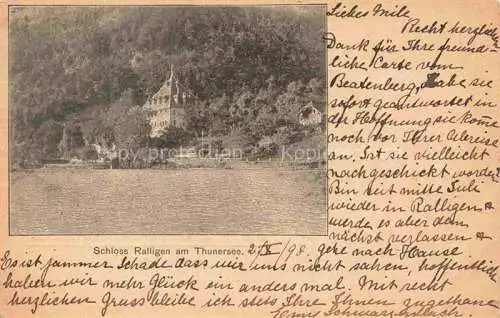 Liebes Mile,
Recht herzlichen
Dank für Ihre freund-
liche Carte vom
Beatenberg, habe sie
sofort geantwortet in
der Hoffnung sie komme
noch vor Ihrer Abreise
an. Ist sie vielleicht
nachgeschickt worden?
Bin seit mitte Juli
wieder in Ralligen &
werde es aber dem
nächst verlassen &
Schloss Ralligen am Thunersee. 2/X/98. gehe nach Hause.
Es ist jammer Schade dass wir uns nicht sahen, hoffentlich
haben wir mehr Glück ein anders mal. Mit recht
herzlichen Gruss bleibe ich stets Ihre Ihnen zugethane
delcampe